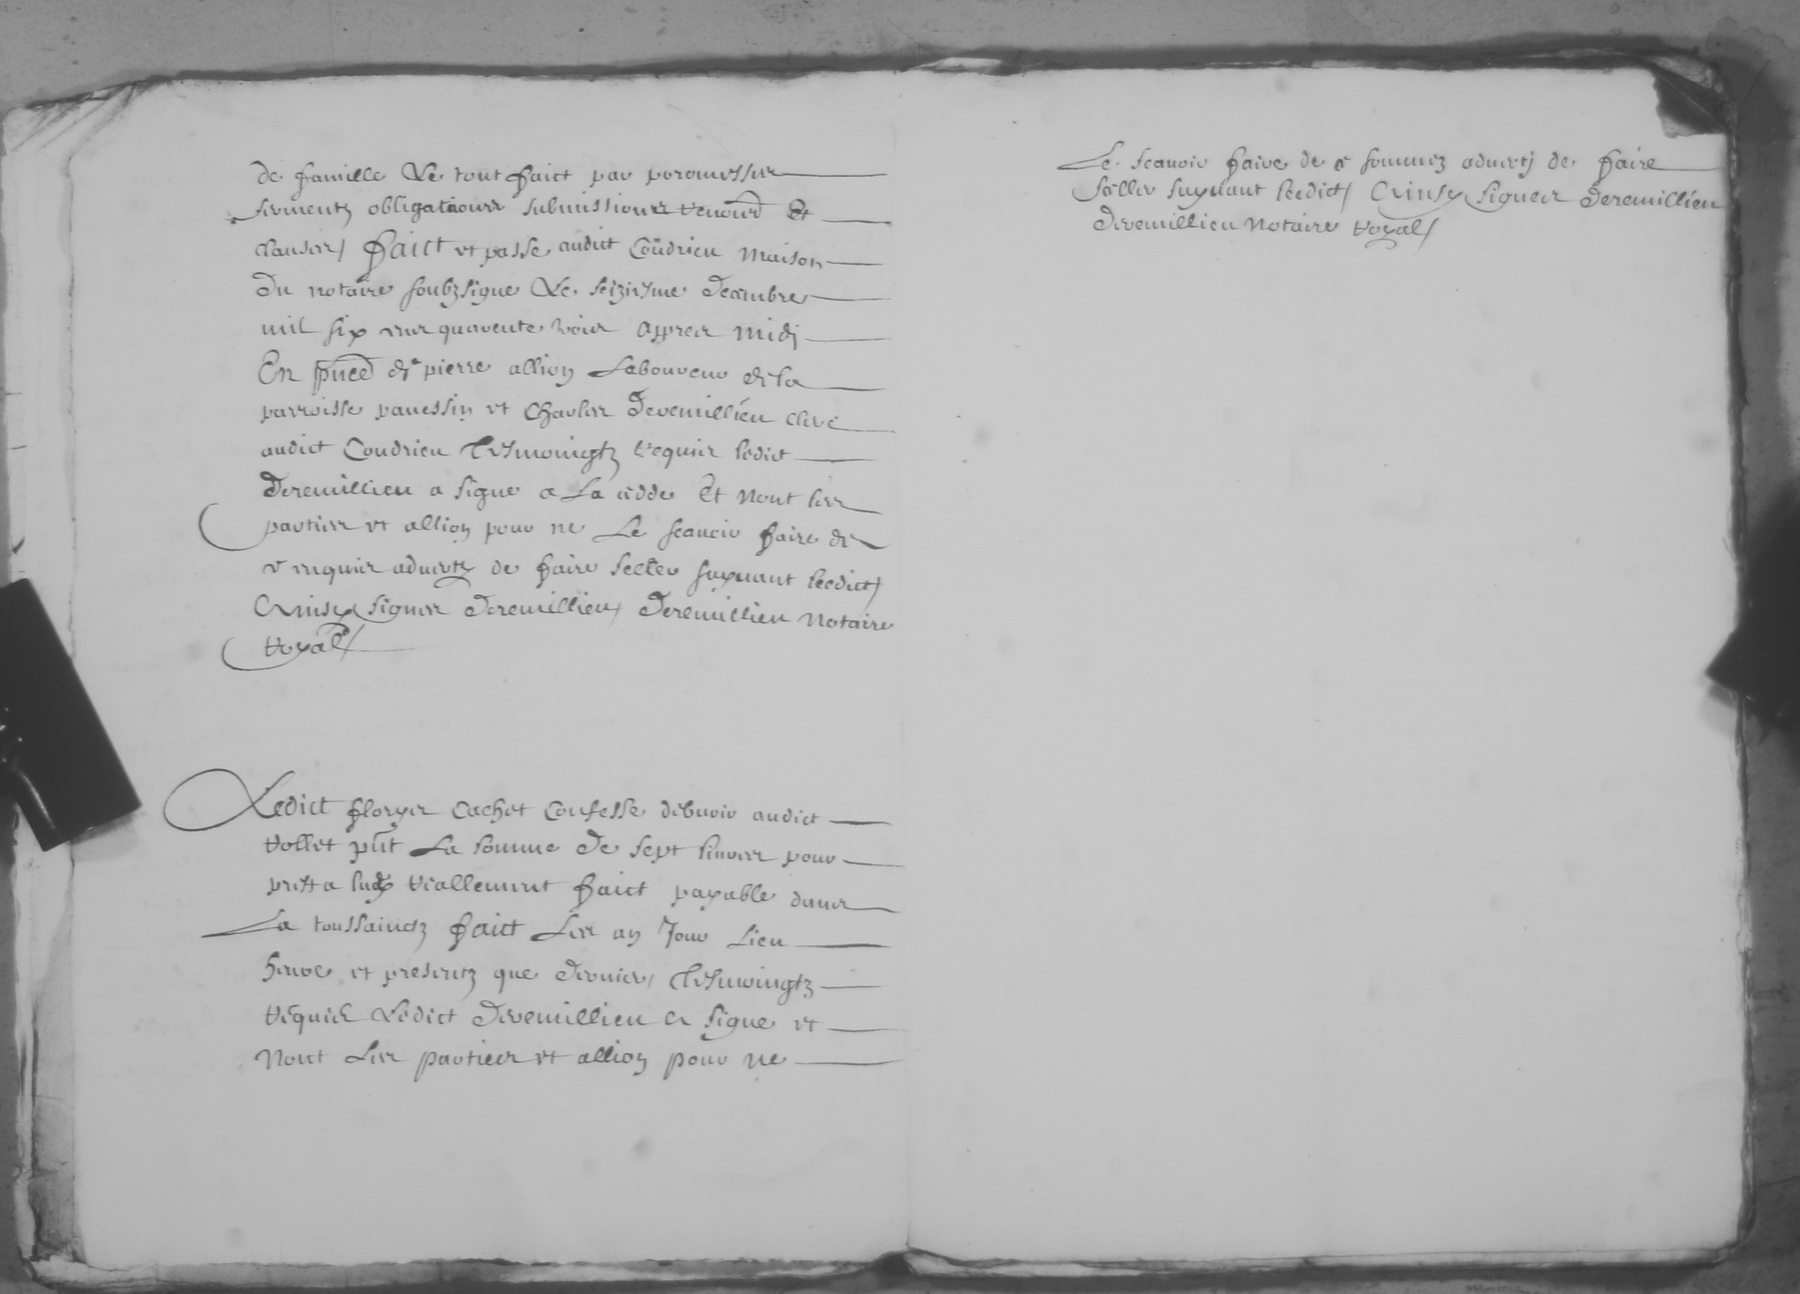 de famille Le tout faict par promesses
sermentz obligations submissions renond Et
clauses / faict et passe audict Coudrieu maison
du notaire soubzsigne Le seiziesme decembre
mil six cens quarente trois appres midj
En pnce de pierre allion Laboureur de la
parroisse pauessin et Charles deremillieu clerc
audict Coudrieu tesmoingtz requis ledict
deremillieu a signe a La cedde Et Nont les
parties et allion pour ne Le scauoir faire de
ce enquis aduertz de faire seeller suyuant leedict /
Ainsy signes deremillieu / deremillieu Notaire
royal /
Ledict floryes Cachet Confesse debuoir audict
rollet pnt La somme de sept liures pour
prest a luy reallement faict payable dans
La toussainctz faict Les an Jour Lieu
heure et presentz que dernier / tesmoingtz
requis Ledict deremillieu a signe et
Nont Les parties et allion pour ne
Le scauoir faire de ce sommez aduertj de faire
seller suyuant leedict / Ainsy signes deremillieu
deremillieu Notaire royal /